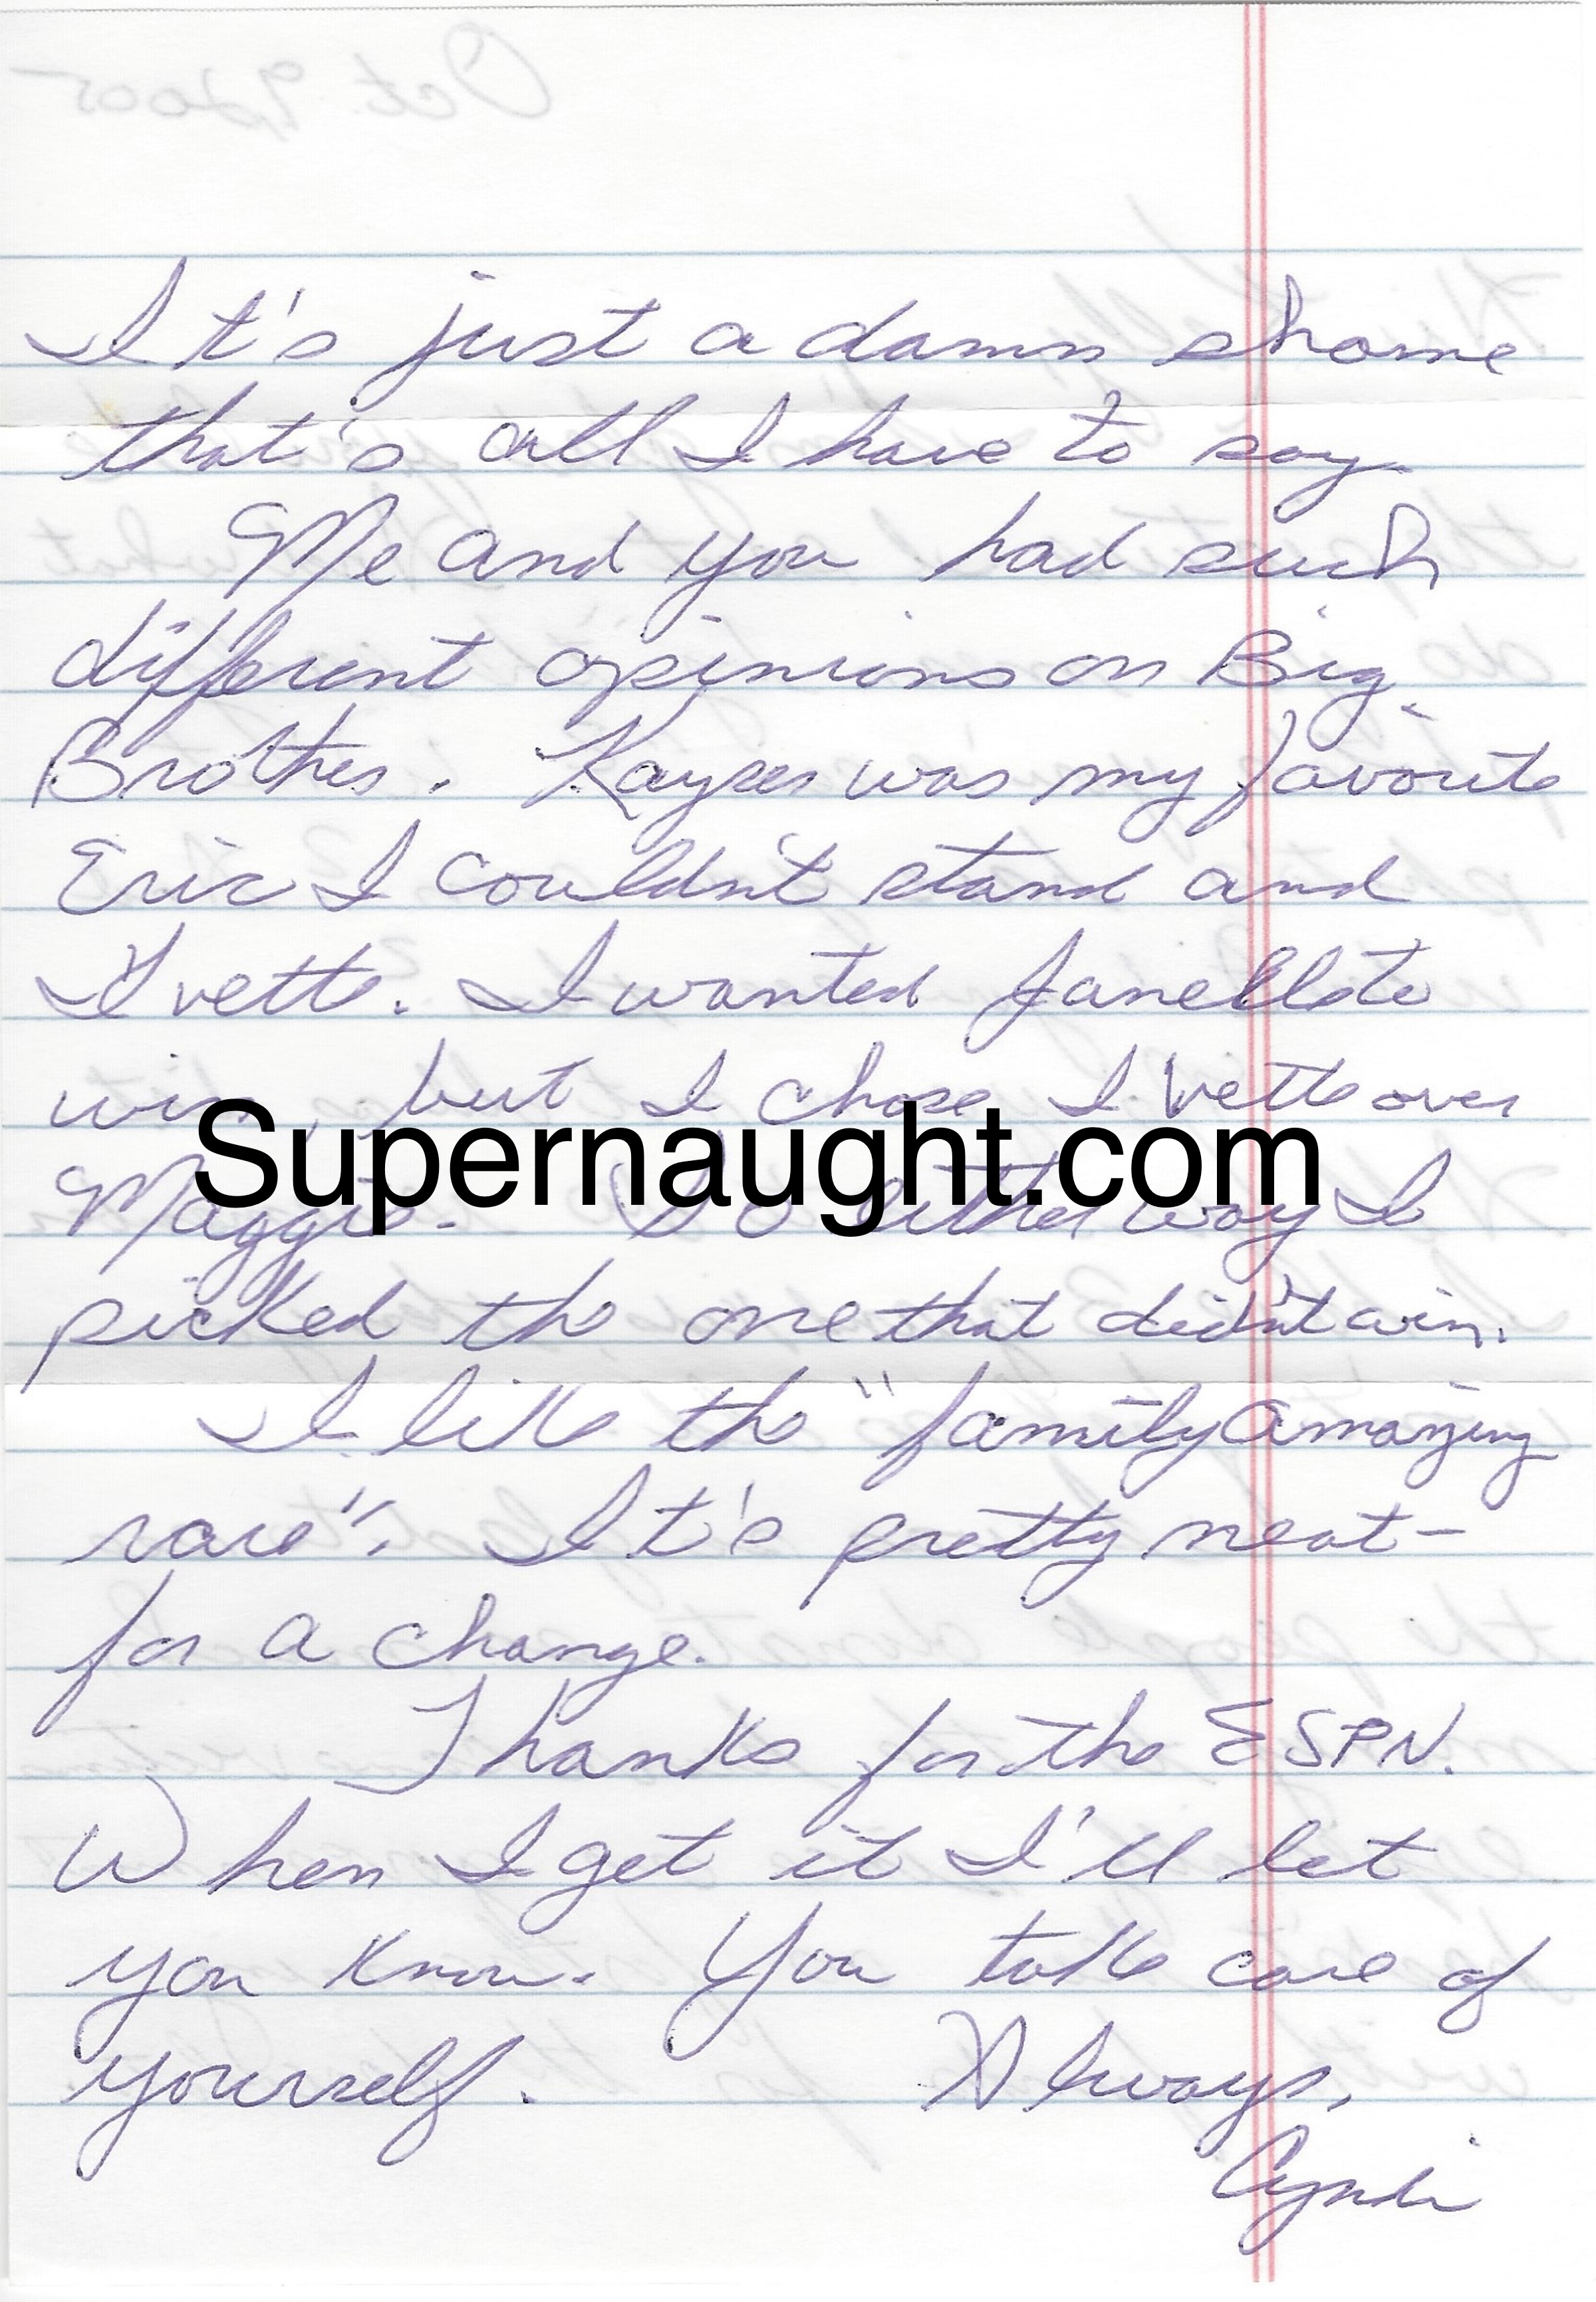 Oct 9, 2005
It's just a damn shame
that's all I have to say.
Me and you had such
different opinions on Big
Brother. Kayser was my favorite
Eric I couldn't stand and
Ivette. I wanted Janelle to
win, but I chose Ivette over
Supernaught.com
Maggie. So either way I
picked the one that didn't win.
I like the "family amazing
race". It's pretty neat-
for a change.
Thanks for the ESPN.
When I get it I'll let
you know. You take care of
yourself. Always,
Cyndi